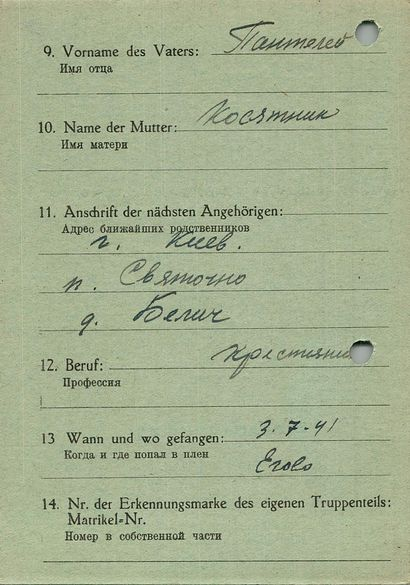 9. Vorname des Vaters: Пантелей
Имя отца
10. Name der Mutter: Косятник
Имя матери
11. Anschrift der nächsten Angehörigen:
Адрес ближайших родственников
г. Киев.
п. Святочно
д. Белич
12. Beruf: крестьянин
Профессия
13 Wann und wo gefangen: 3.7-41
Когда и где попал в плен
14. Nr. der Erkennungsmarke des eigenen Truppenteils:
Matrikel-Nr.
Номер в собственной части